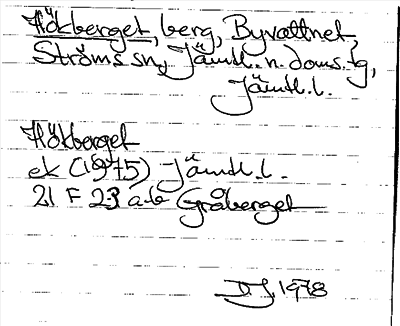 Hökberget, berg, Byvattnet,
Ströms sn, Jämtl. n. doms. tg,
Jämtl. l.
Hökberget
ek (1975) Jämtl. l.
21 F 23 a-b Gråberget
1978